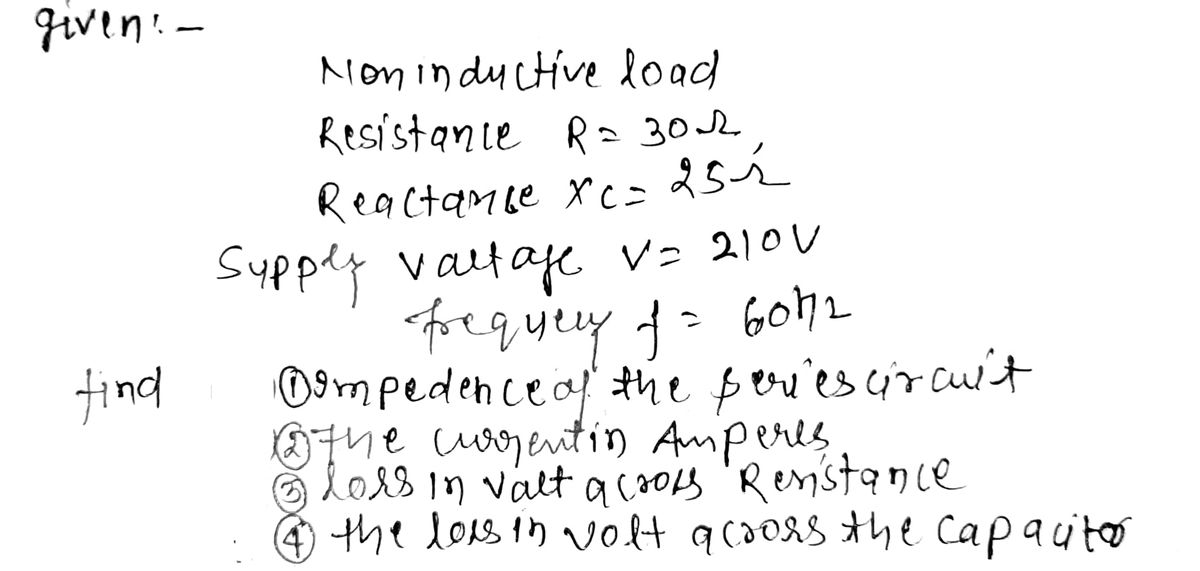 given:-
Noninductive load
Resistance R = 30Ω
Reactance Xc = 25Ω
Supply valtage V = 210V
frequency f = 60Hz
find ① Impedence of the series circuit
② The current in Amperes
③ loss in valt across Resistance
④ the loss in volt across the capacitor